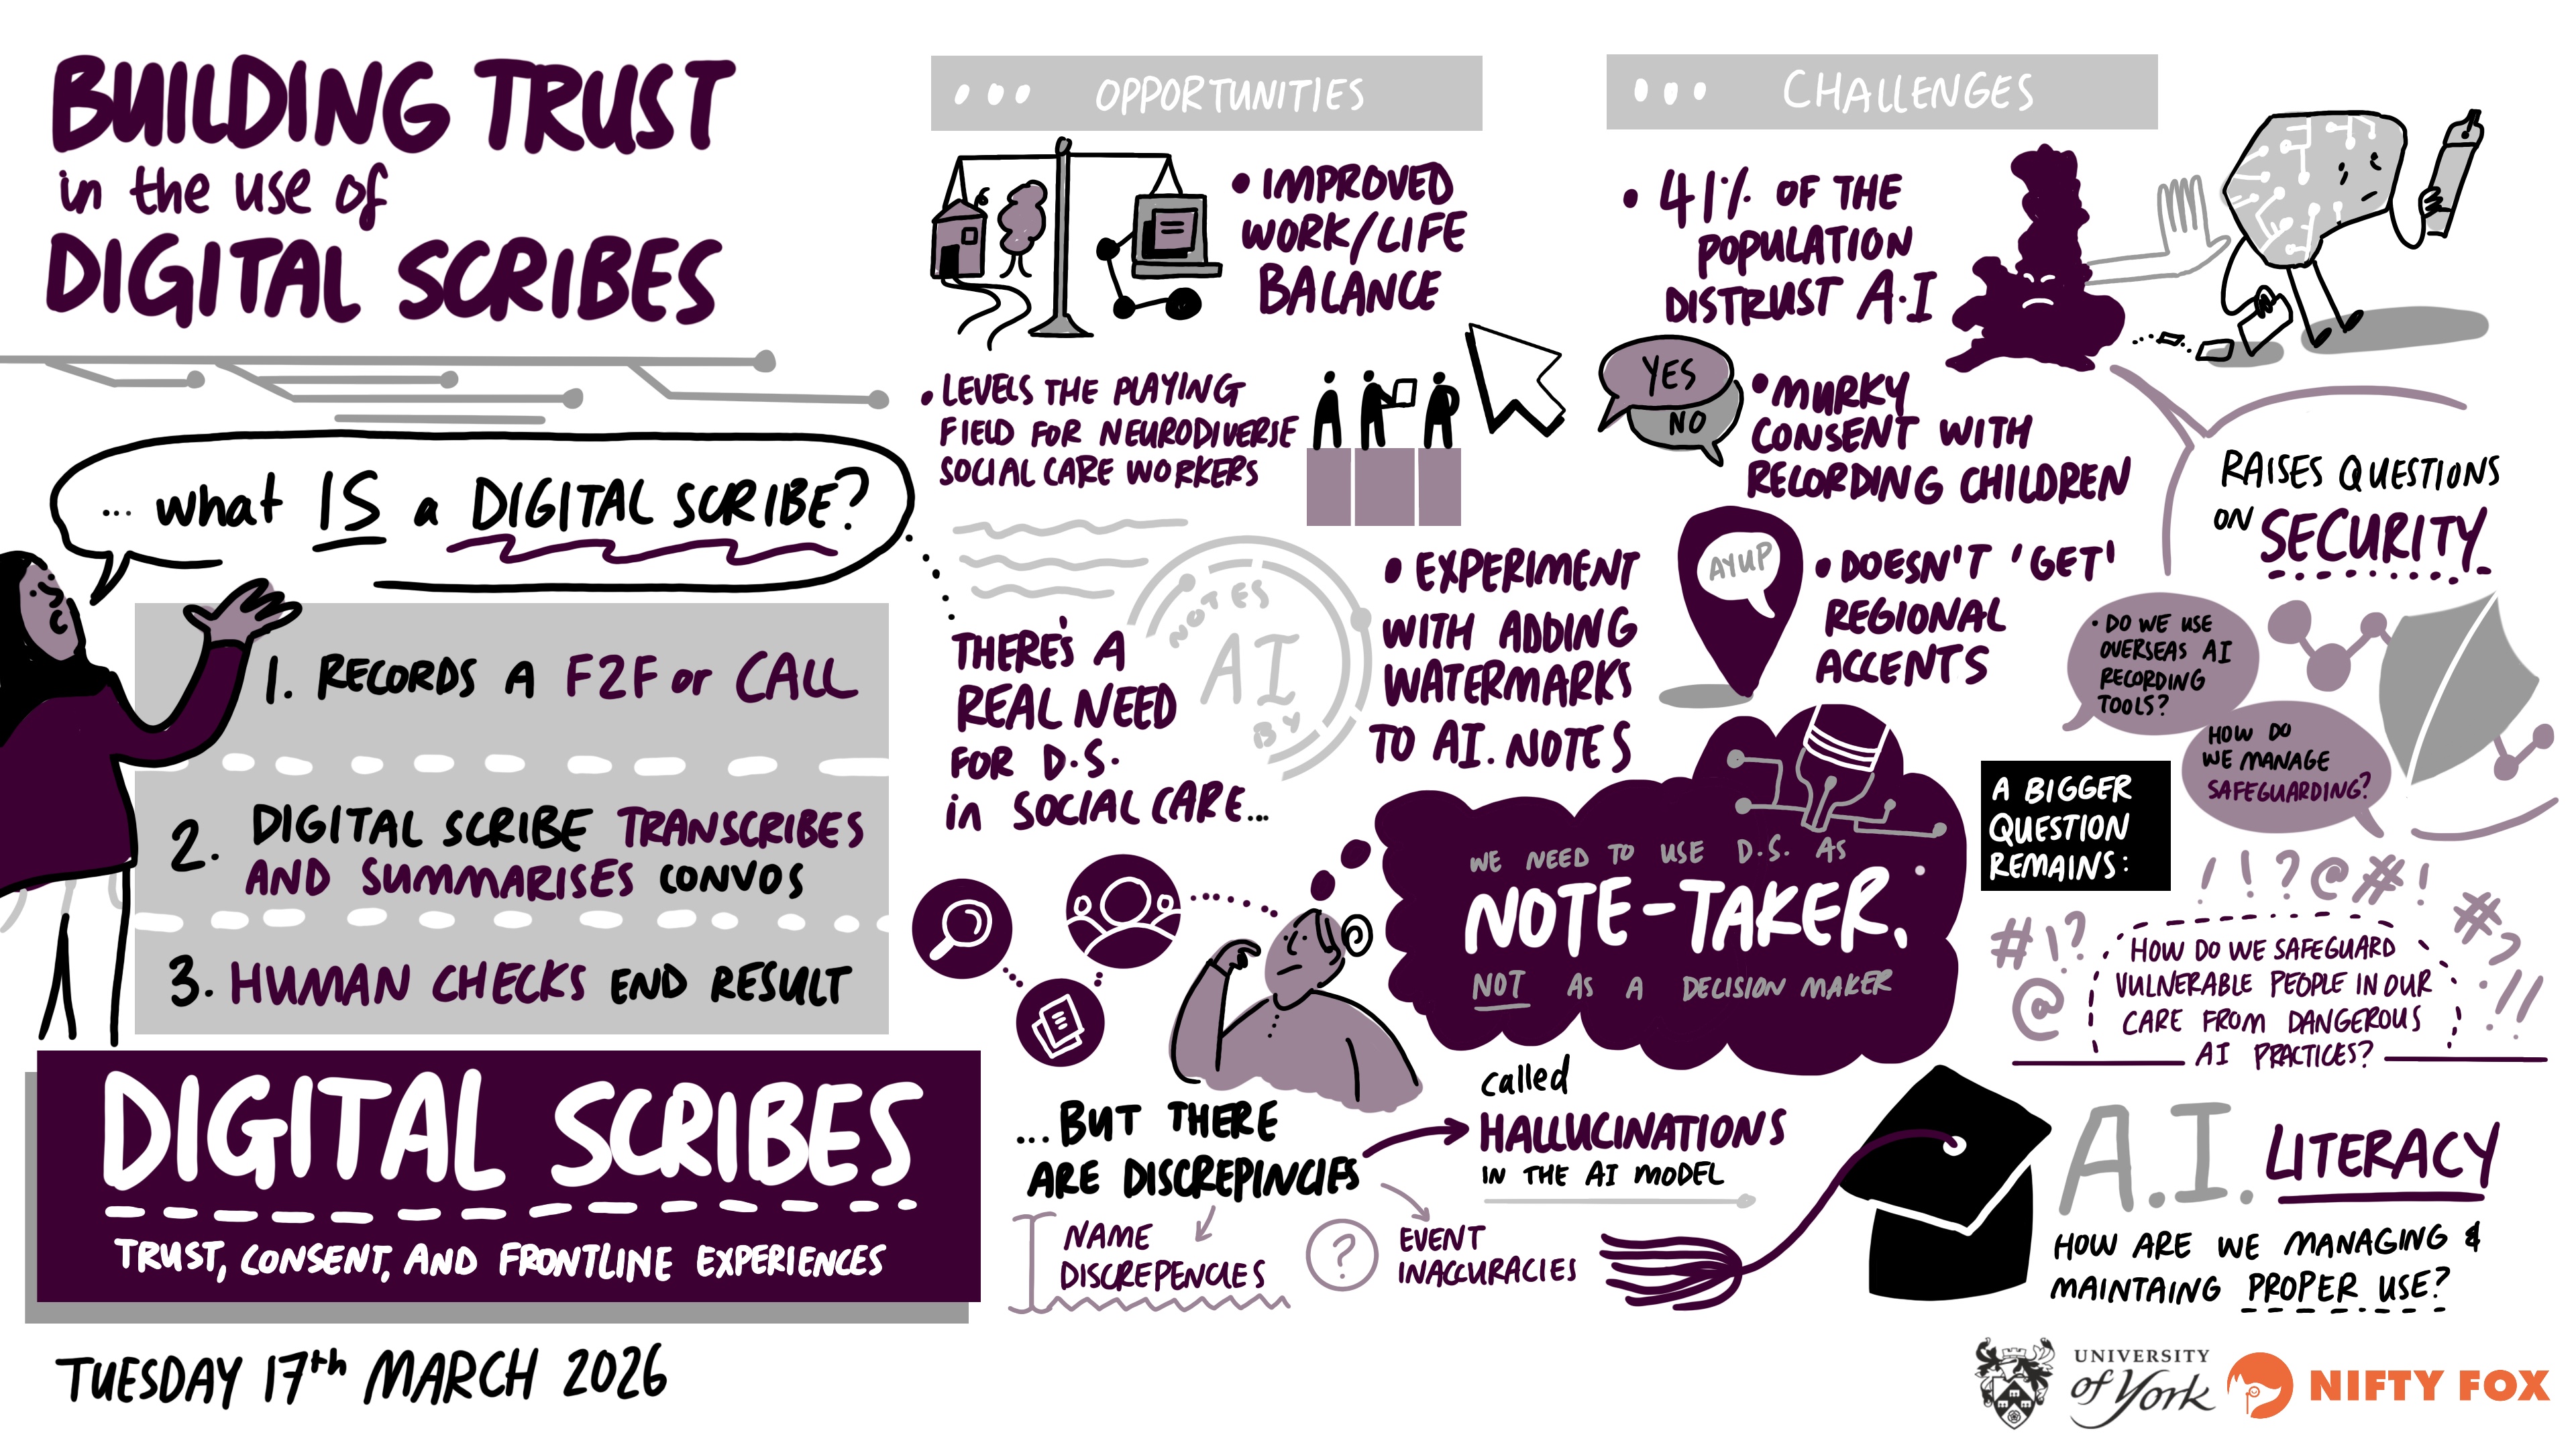 BUILDING TRUST
in the use of
DIGITAL SCRIBES
... what IS a DIGITAL SCRIBE?
1. RECORDS A F2F or CALL
2. DIGITAL SCRIBE TRANSCRIBES
AND SUMMARISES CONVOS
3. HUMAN CHECKS END RESULT
DIGITAL SCRIBES
TRUST, CONSENT, AND FRONTLINE EXPERIENCES
TUESDAY 17th MARCH 2026
... OPPORTUNITIES
• IMPROVED
WORK/LIFE
BALANCE
• LEVELS THE PLAYING
FIELD FOR NEURODIVERSE
SOCIAL CARE WORKERS
NOTES
AI
BY
• EXPERIMENT
WITH ADDING
WATERMARKS
TO AI. NOTES
THERE'S A
REAL NEED
FOR D.S.
in SOCIAL CARE...
WE NEED TO USE D.S. AS
NOTE-TAKER.
NOT AS A DECISION MAKER
...BUT THERE
ARE DISCREPINCIES
called
HALLUCINATIONS
IN THE AI MODEL
NAME
DISCREPENCIES
?
EVENT
INACCURACIES
... CHALLENGES
• 41% OF THE
POPULATION
DISTRUST A.I
YES
NO
• MURKY
CONSENT WITH
RECORDING CHILDREN
AYUP
• DOESN'T 'GET'
REGIONAL
ACCENTS
RAISES QUESTIONS
ON SECURITY
• DO WE USE
OVERSEAS AI
RECORDING
TOOLS?
HOW DO
WE MANAGE
SAFEGUARDING?
A BIGGER
QUESTION
REMAINS:
!!?@#!
#!?
@
#?
!!
HOW DO WE SAFEGUARD
VULNERABLE PEOPLE IN OUR
CARE FROM DANGEROUS
AI PRACTICES?
A.I. LITERACY
HOW ARE WE MANAGING &
MAINTAING PROPER USE?
UNIVERSITY
of York
NIFTY FOX